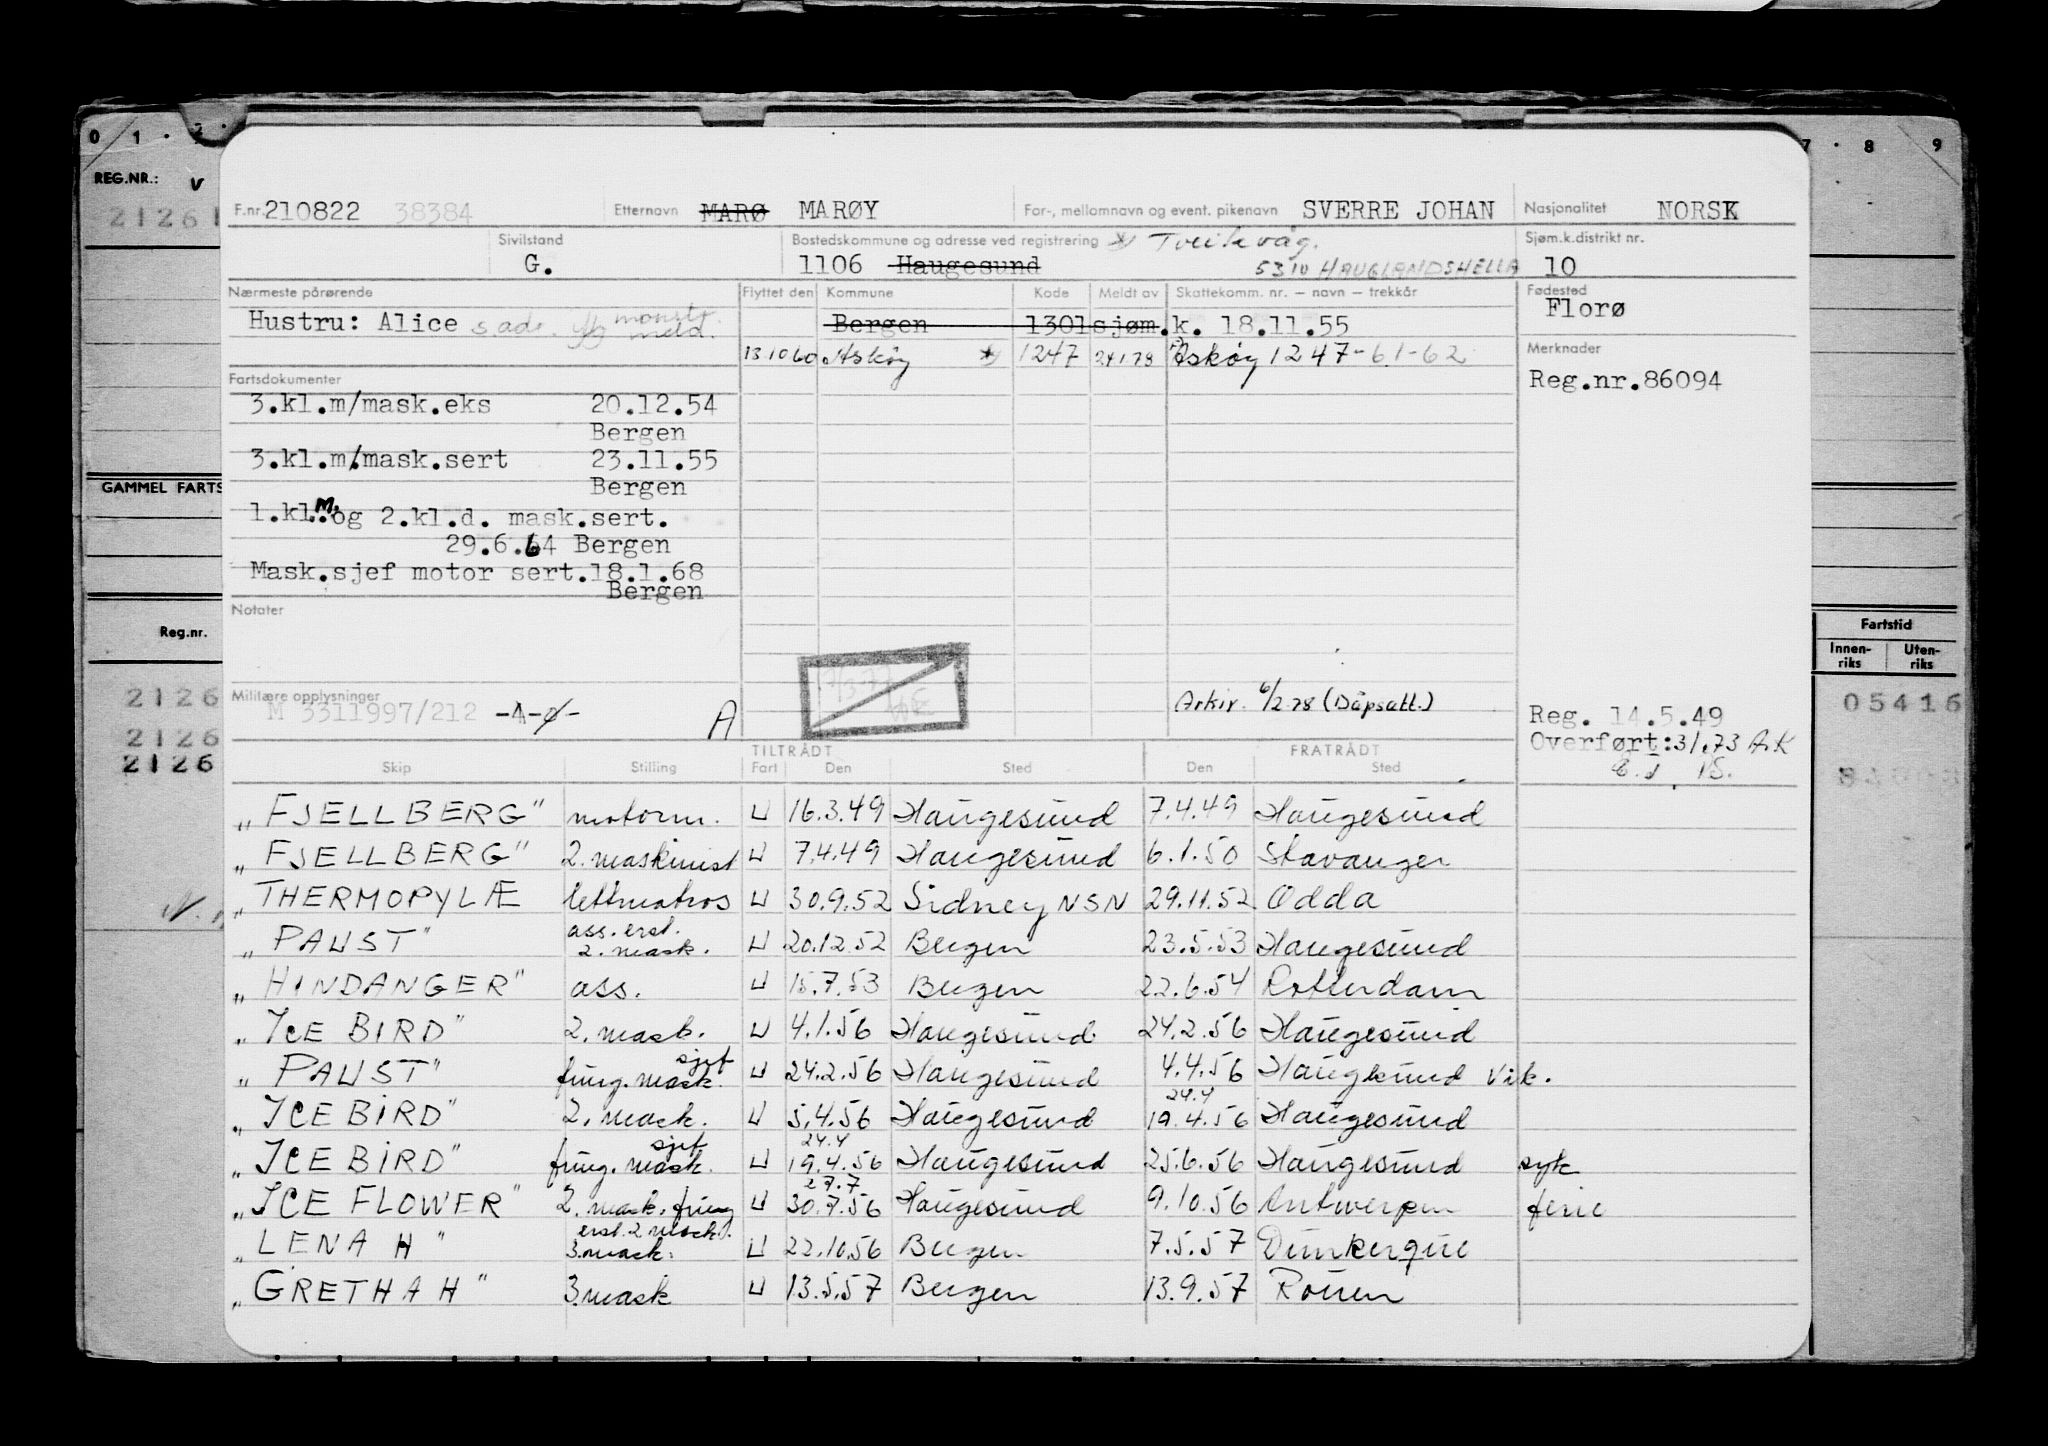 0 1 · 2 · 7 · 8 9
REG.NR.: V
21261
GAMMEL FARTS
Reg.nr.
2126
2126
2126
Fartstid
Innen-riks Uten-riks
05416
F.nr. 210822 38384 Etternavn MARØ MARØY For-, mellomnavn og event. pikenavn SVERRE JOHAN Nasjonalitet NORSK
Sivilstand Bostedskommune og adresse ved registrering Sjøm.k.distrikt nr.
G. 1106 Haugesund 5310 HAUGLANDSHELLA 10
Nærmeste pårørende Flyttet den Kommune Kode Meldt av Skattekomm. nr. – navn – trekkår Fødested
Hustru: Alice s adr. mønstr. meld. Bergen 1301 sjøm.k. 18.11.55 Florø
13.10.60 Askøy 1247 24.1.78 Askøy 1247-61-62 Merknader
Reg.nr.86094
Fartsdokumenter
3.kl.m/mask.eks 20.12.54
Bergen
3.kl.m/mask.sert 23.11.55
Bergen
1.kl.M. og 2.kl.d. mask.sert.
29.6.64 Bergen
Mask.sjef motor sert.18.1.68
Bergen
Notater
Militære opplysninger
M 3311997/212 -A-ø- A
Arkiv. 6/2.78 (Dåpsatt.)
Reg. 14.5.49
Overført: 3/1.73 A.K
TILTRÅDT FRATRÅDT
Skip Stilling Fart Den Sted Den Sted
„FJELLBERG" motorm. U 16.3.49 Haugesund 7.4.49 Haugesund
„FJELLBERG" 2. maskinist U 7.4.49 Haugesund 6.1.50 Stavanger
„THERMOPYLÆ lettmatros U 30.9.52 Sidney NSN 29.11.52 Odda
„PAUST" ass. erst. 2. mask. U 20.12.52 Bergen 23.5.53 Haugesund
„HINDANGER" ass. U 15.7.53 Bergen 22.6.54 Rotterdam
„ICE BIRD" 2. mask. U 4.1.56 Haugesund 24.2.56 Haugesund
„PAUST" fung. mask.sjef U 24.2.56 Haugesund 4.4.56 Haugesund vik.
„ICE BIRD" 2. mask. U 5.4.56 Haugesund 24.4 19.4.56 Haugesund
„ICE BIRD" fung. mask.sjef U 24.4 19.4.56 Haugesund 25.6.56 Haugesund syk
„ICE FLOWER" 2. mask. fung U 27.7 30.7.56 Haugesund 9.10.56 Antwerpen ferie
„LENA H" erst. 2 mask. 3. mask. U 22.10.56 Bergen 7.5.57 Dunkerque
„GRETHA H" 3. mask U 13.5.57 Bergen 13.9.57 Rouen